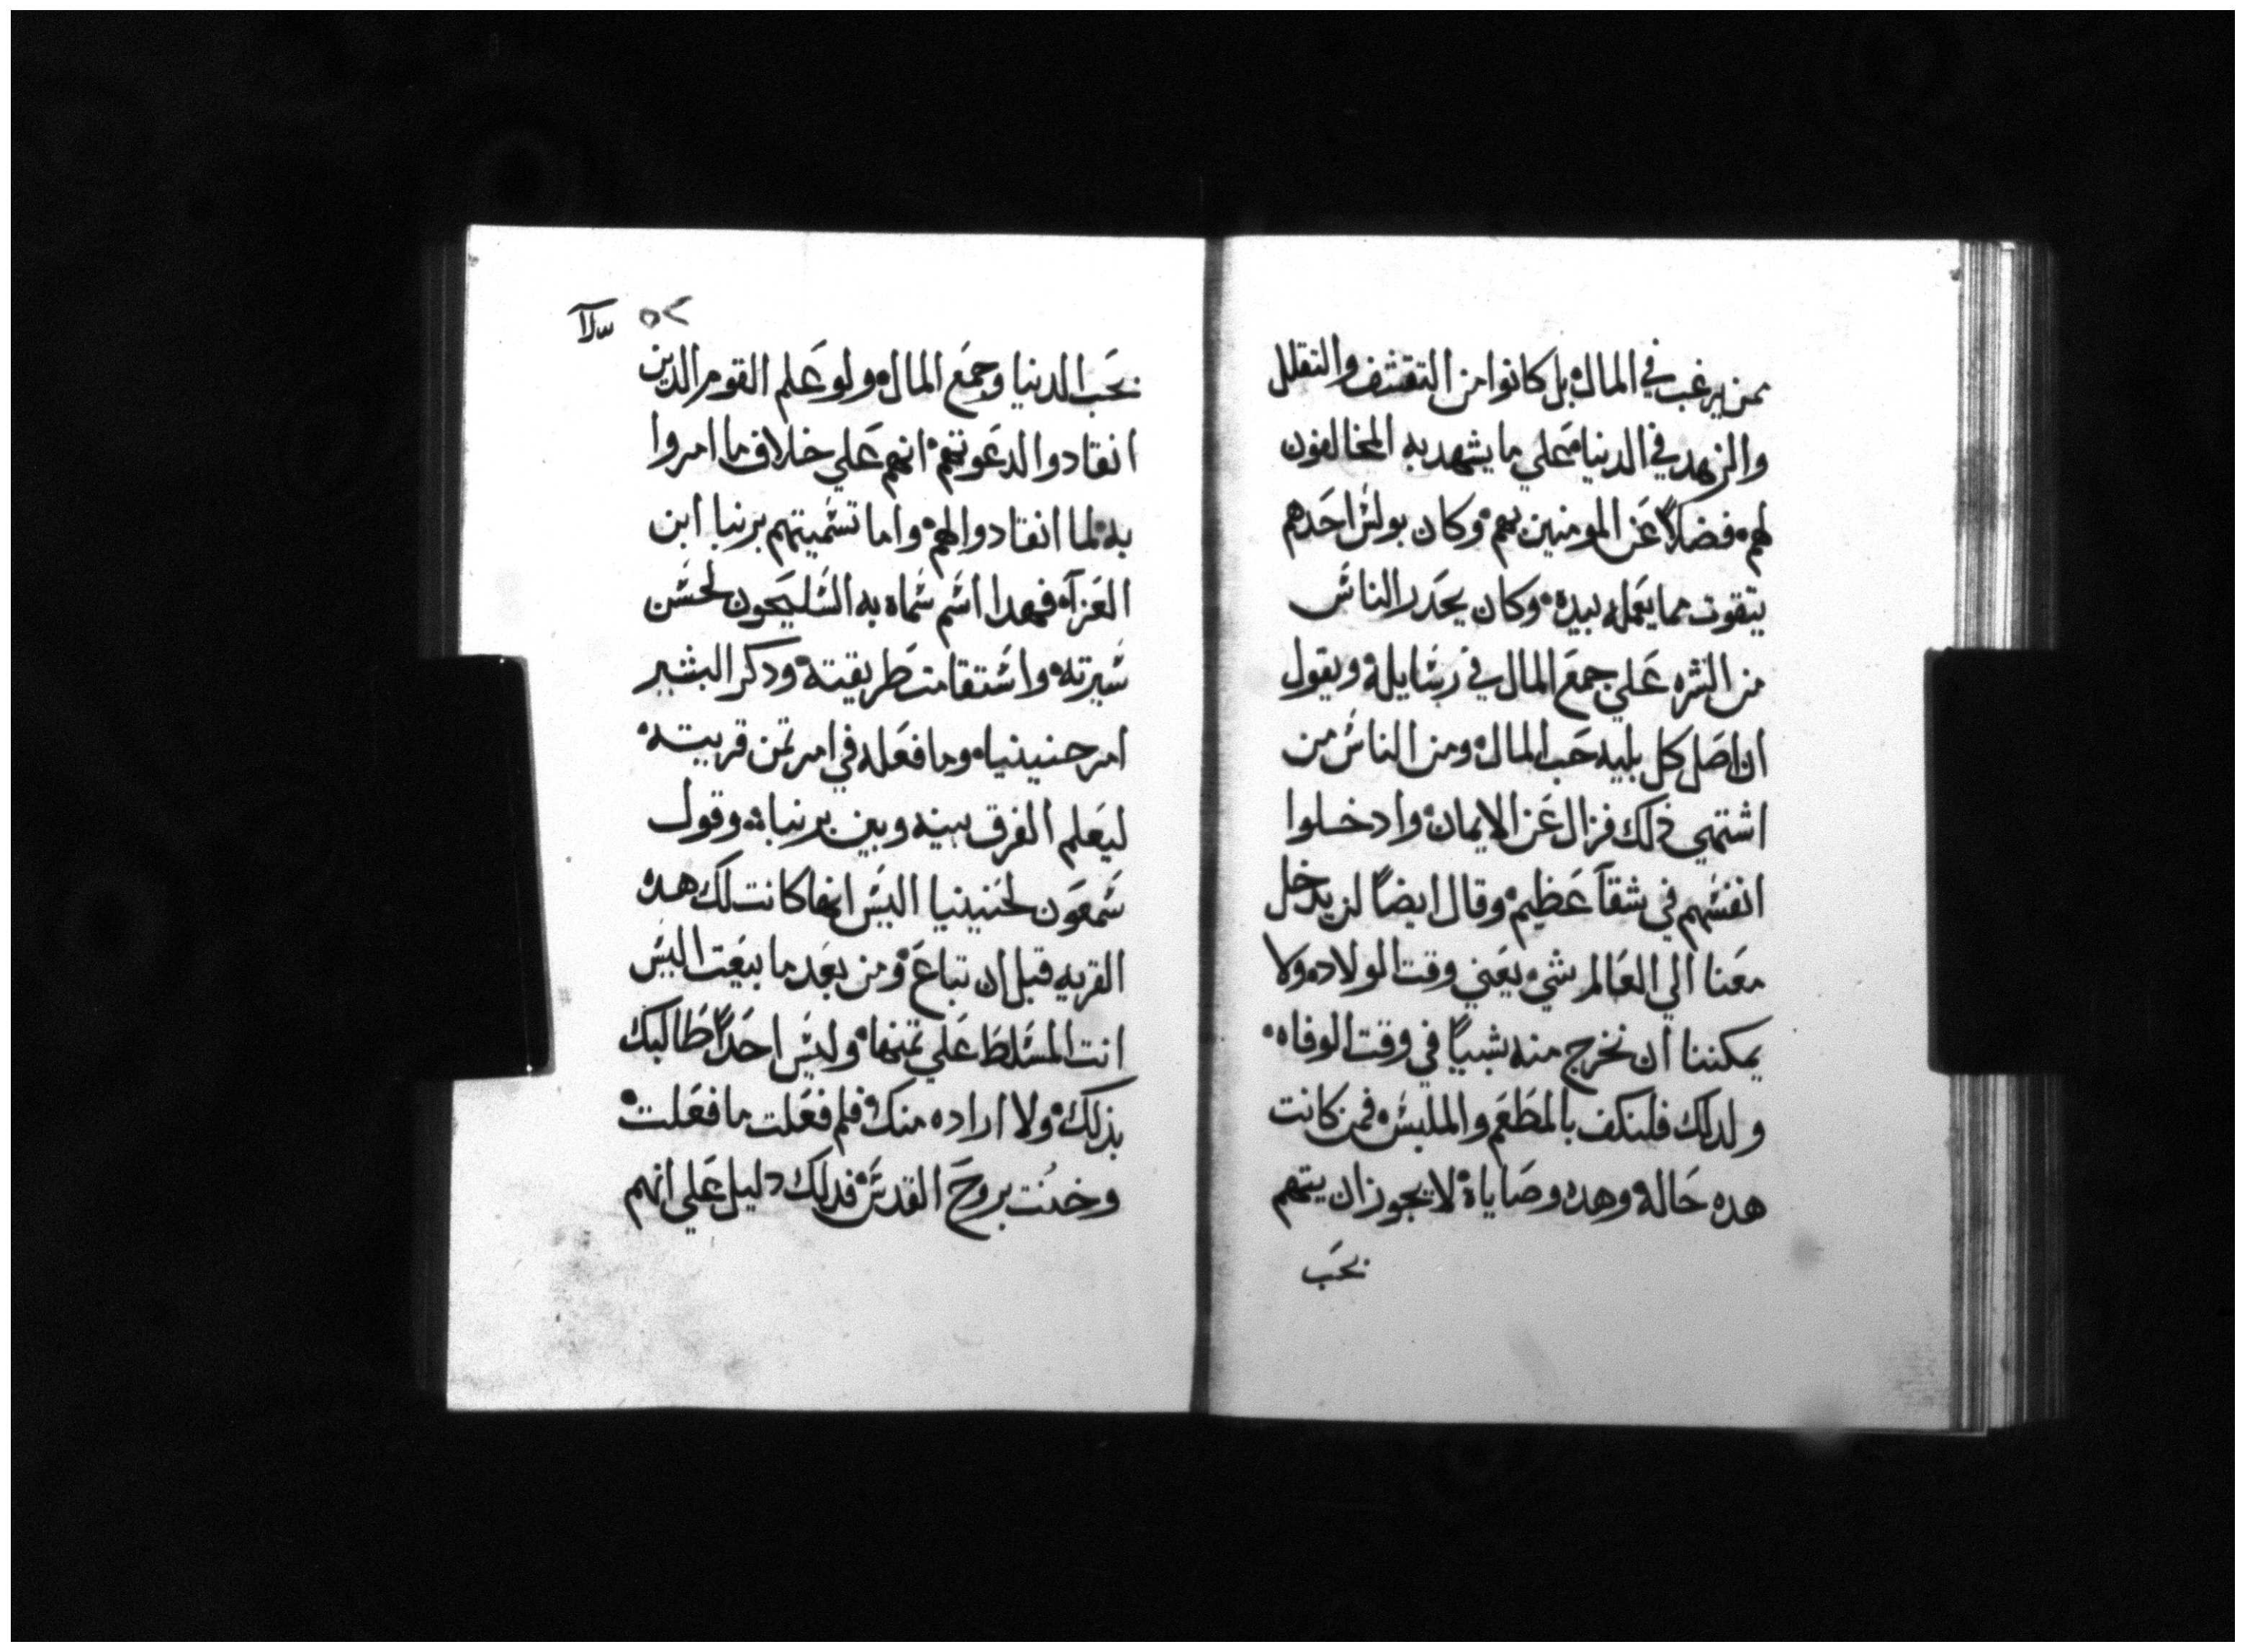 ممن يرغب في المال بل كانوا من التقشف والتقلل
والزهد في الدنيا على ما يشهد به المخالفون
لهم فضلاً عن المومنين بهم وكان بولس احدهم
يتقوت مما يعمله بيده وكان يحدر الناس
من الشره علي جمع المال في رسايله ويقول
ان اصل كل بليه حب المال ومن الناس من
اشتهي ذلك فزال عن الايمان وادخلوا
انفسهم في شقآ عظيم وقال ايضاً لن يدخل
معنا الي العالم شي يعني وقت الولاده ولا
يمكننا ان نخرج منه بشيياً في وقت الوفاه
ولدلك فلنكف بالمطعم والملبس فمن كانت
هده حاله وهده وصاياه لا يجوز ان يتهم
بحب
٥٢
بحب الدنيا وجمع المال ولو علم القوم الدين
انقادوا لدعوتهم انهم علي خلاف ما امروا
به لما انقادوا لهم واما تسميتهم برنبا ابن
العزآ فهدا اسم سماه به السليحون لحسن
سيرته واستقامت طريقته ودكر البشير
امر حنينياه وما فعله في امر تمن قريته
ليعلم الفرق بينه وبين برنباه وقول
سمعون لحنينيا اليس انها كانت لك هده
القريه قبل ان تباع ومن بعد ما بيعت اليس
انت المسلط علي تمنها وليس احداً طالبك
بذلك ولا اراده منك فلم فعلت ما فعلت
وخنت بروح القدس فدلك دليل علي انهم